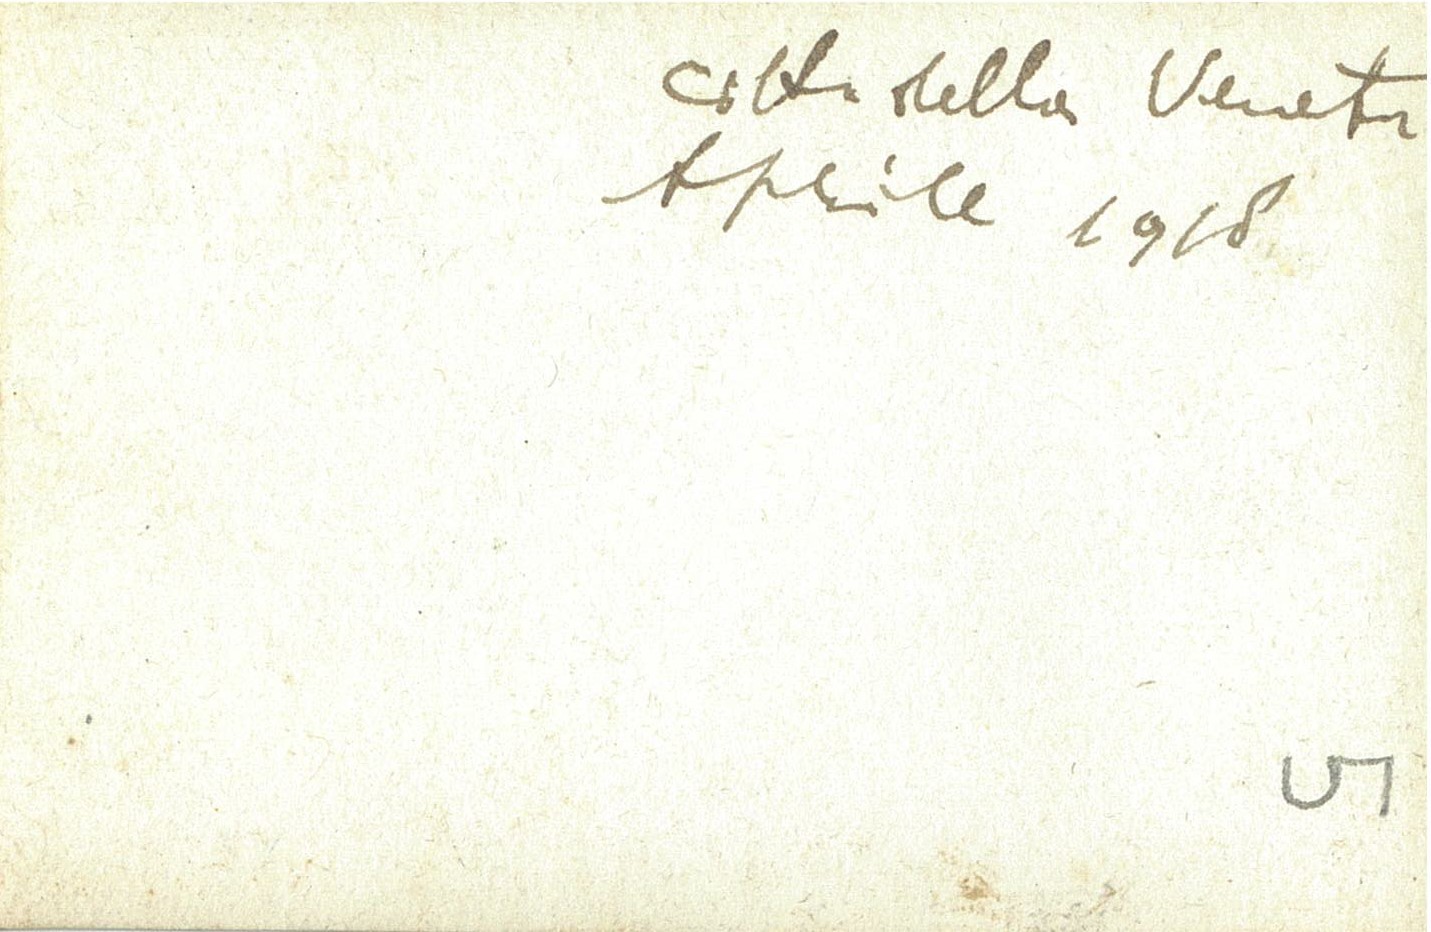 Cittadella Veneta
Aprile 1918
5